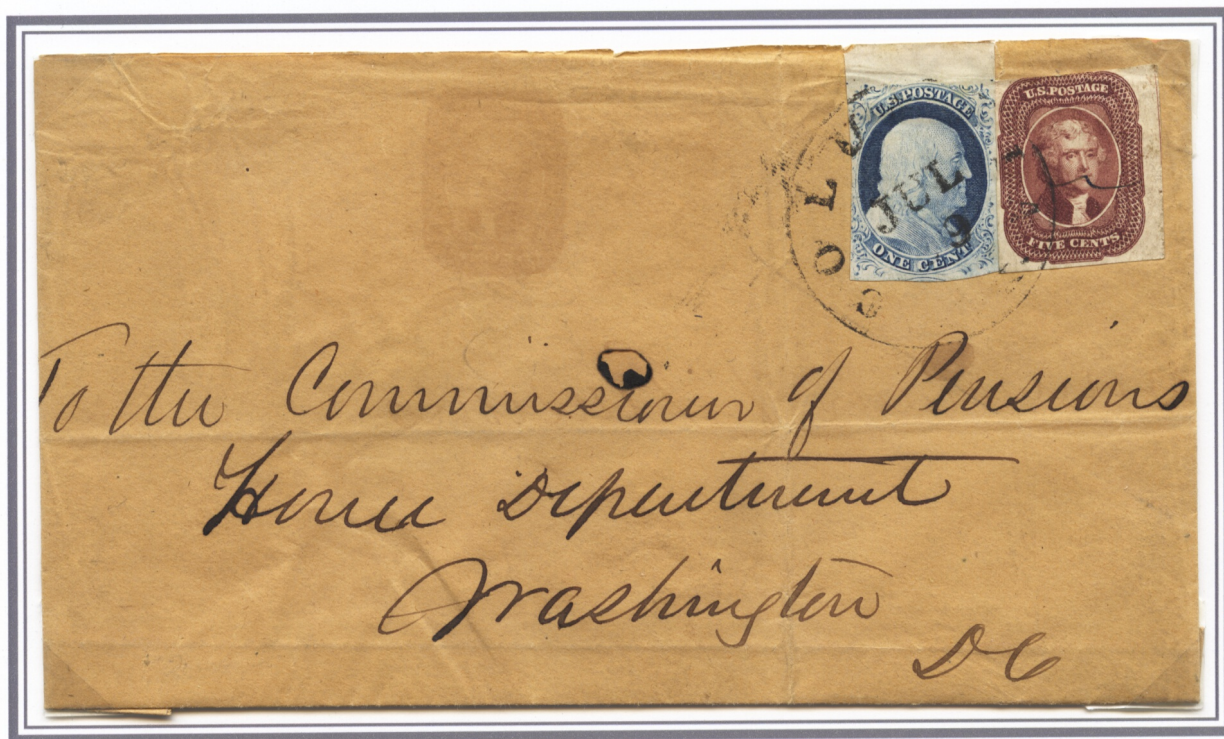 U.S.POSTAGE
ONE CENT
U.S.POSTAGE
FIVE CENTS
COLU
JUL
9
To the Commissioner of Pensions
Home Department
Washington
DC